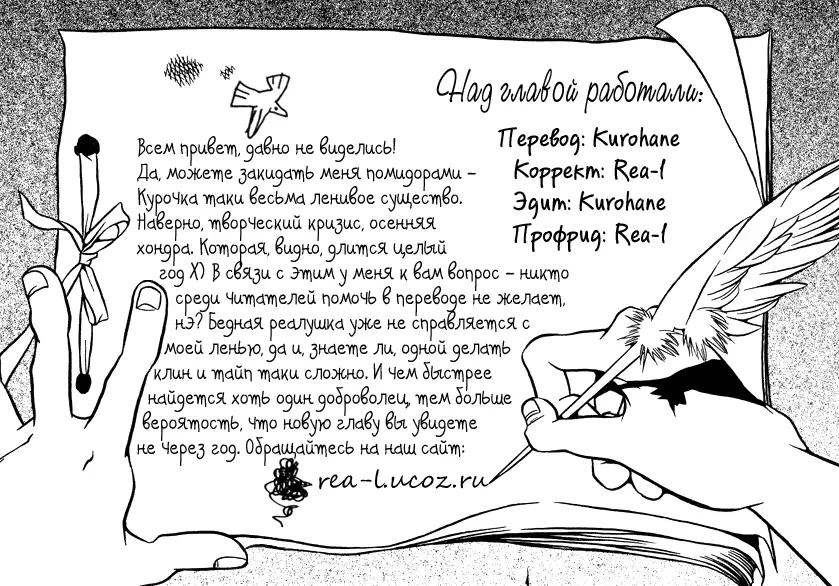 Над главой работали:
Перевод: Kurohane
Коррект: Rea-l
Эдит: Kurohane
Профрид: Rea-l
Всем привет, давно не виделись!
Да, можете закидать меня помидорами –
Курочка таки весьма ленивое существо.
Наверно, творческий кризис, осенняя
хондра. Которая, видно, длится целый
год X) В связи с этим у меня к вам вопрос – никто
среди читателей помочь в переводе не желает,
нэ? Бедная реалушка уже не справляется с
моей ленью, да и, знаете ли, одной делать
клин и тайп таки сложно. И чем быстрее
найдется хоть один доброволец, тем больше
вероятость, что новую главу вы увидете
не через год. Обращайтесь на наш сайт:
rea-l.ucoz.ru